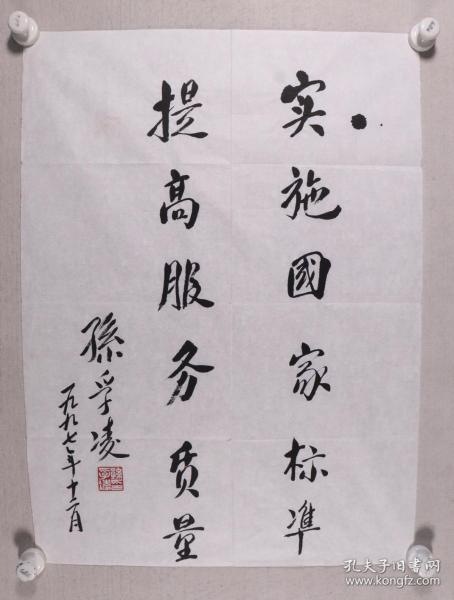 实施國家标準
提高服务质量
孫孚凌
一九九七年十二月
孔夫子旧书网
www.kongfz.com